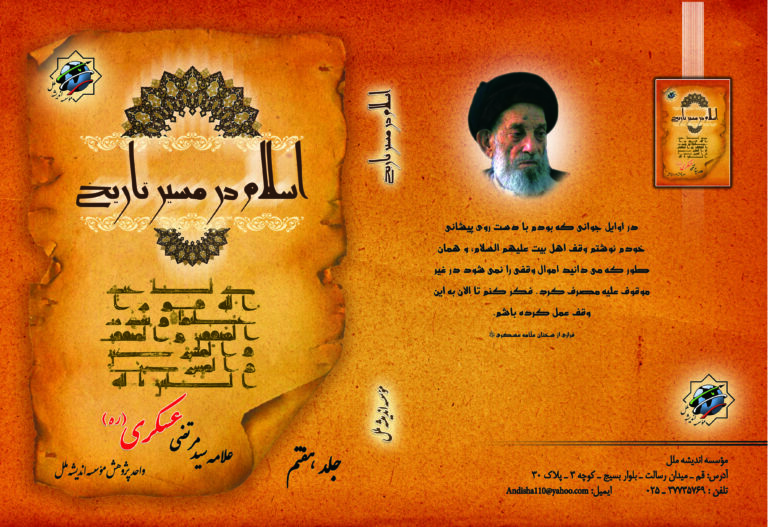 موسسه اندیشه ملل
اسلام در مسیر تاریخ
علامه سید مرتضی عسکری (ره)
واحد پژوهش مؤسسه اندیشه ملل
جلد هفتم
اسلام در مسیر تاریخ
مؤسسه اندیشه ملل
اسلام در مسیر تاریخ
در اوایل جوانی که بودم با دست روی پیشانی
خودم نوشتم وقف اهل بیت علیهم السلام، و همان
طور که می دانید اموال وقفی را نمی شود در غیر
موقوف علیه مصرف کرد. فکر کنم تا الان به این
وقف عمل کرده باشم.
فرازی از سخنان علامه عسکری
موسسه اندیشه ملل
مؤسسه اندیشه ملل
آدرس: قم ـ میدان رسالت ـ بلوار بسیج ـ کوچه ۳ ـ پلاک ۳۰
تلفن : ۳۷۷۳۵۷۶۹ ـ ۰۲۵ ایمیل: Andisha110@yahoo.com